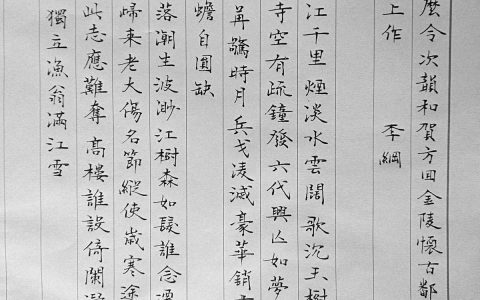 麼令 次韻和賀方回金陵懷古鄱
上作 李綱
江千里煙淡水雲闊歌沉玉樹
寺空有疏鐘發六代興亡如夢
苒驚時月兵戈凌滅豪華銷
蟾自圓缺
落潮生波渺江樹森如髮誰念
歸來老大傷名節縱使歲寒途
此志應難奪高樓誰設倚闌
獨立漁翁滿江雪